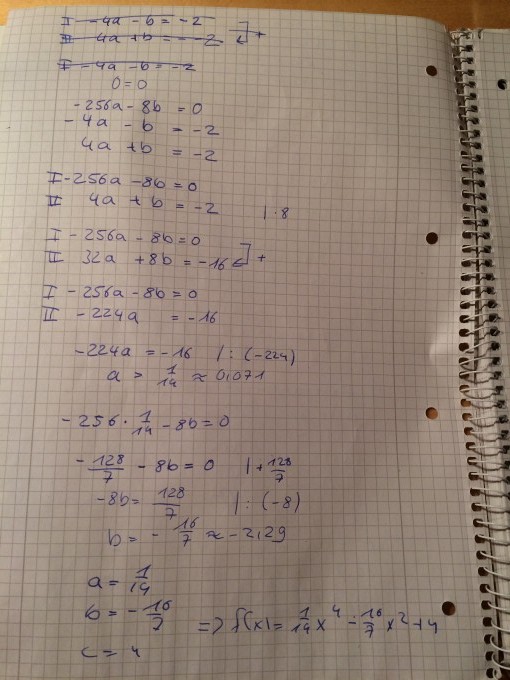 I -4a - b = -2
II 4a + b = -2 ] +
I -4a - b = -2
0 = 0
-256a - 8b = 0
-4a - b = -2
4a + b = -2
I -256a - 8b = 0
II 4a + b = -2 | · 8
I -256a - 8b = 0
II 32a + 8b = -16 ] +
I -256a - 8b = 0
II -224a = -16
-224a = -16 | : (-224)
a = 1/14 ≈ 0,071
-256 · 1/14 - 8b = 0
-128/7 - 8b = 0 | + 128/7
-8b = 128/7 | : (-8)
b = -16/7 ≈ -2,29
a = 1/14
b = -16/7
=> f(x) = 1/14 x^4 - 16/7 x^2 + 4
c = 4